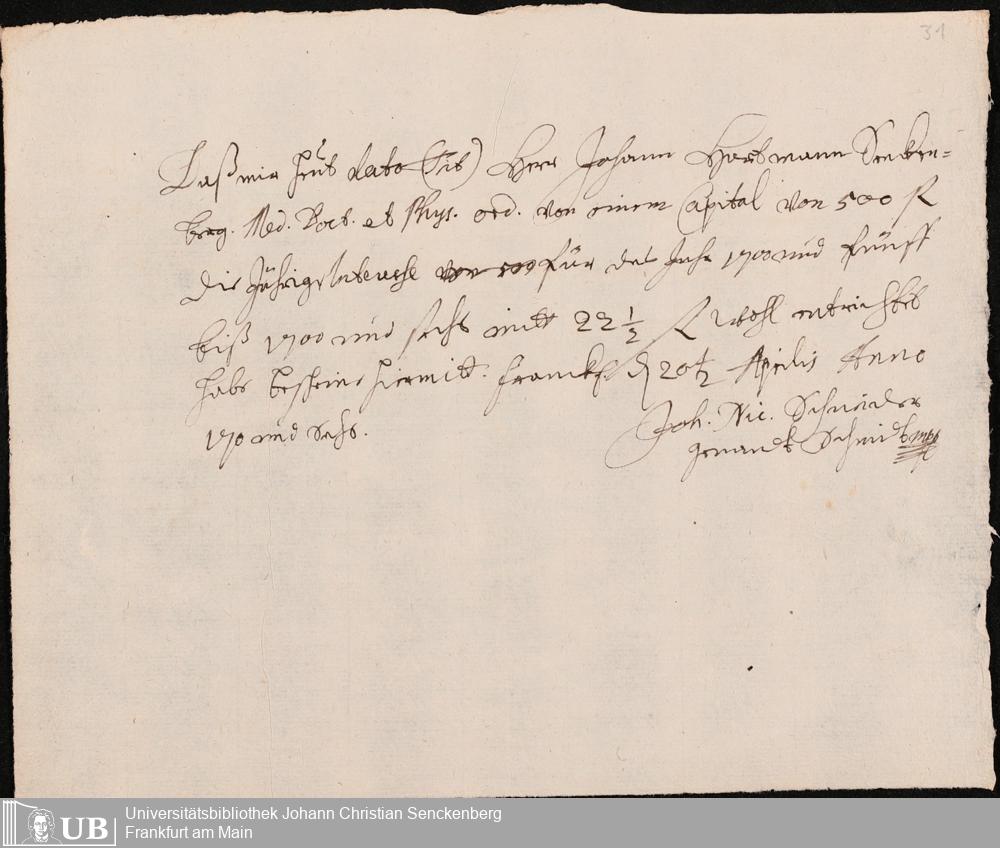 31
Daß mir heut dato (tit) Herr Johann Hartmann Sencken=
berg. Med. Doct. et Phys. ord. von einem Capital von 500 fl
die Jährige Interesse von 500 für das Jahr 1700 und fünff
biß 1700 und sechs mitt 22 1/2 fl wohl entrichtet
habe bescheine hiermitt. Franckf. d 20t Aprilis Anno
170 und sechs.
Joh. Nic. Schneider
genandt Schmidt mpp
UB
Universitätsbibliothek Johann Christian Senckenberg
Frankfurt am Main